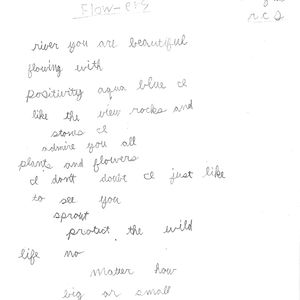 river you are beautiful
flowing with
positivity aqua blue I
like the view rocks and
stones I
admire you all
plants and flowers
I dont doubt I just like
to see you
sprout
protect the wild
life no
matter how
big or small